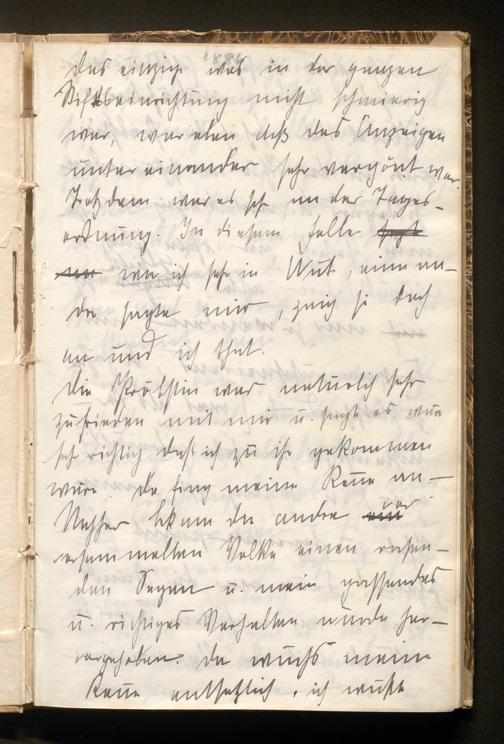 Das einzige was in der ganzen
Stiftseinrichtung nicht schwierig
war, war eben daß das Anzeigen
untereinander sehr verpönt war.
Trotzdem war es sehr an der Tages-
ordnung. In diesem Falle
war ich sehr in Wut, eine an-
dre sagte mir, zeig sie doch
an und ich that.
Die Pröbstin war natürlich sehr
zufrieden mit mir u. sagte es wäre
sehr richtig daß ich zu ihr gekommen
wäre. Da fing meine Reue an –
Nachher bekam die andre vor
versammelten Volke einen
den Segen u. mein passendes
u. richtiges Verhalten wurde her-
vorgehoben. Da wuchs meine
Reue entsetzlich, ich wußte